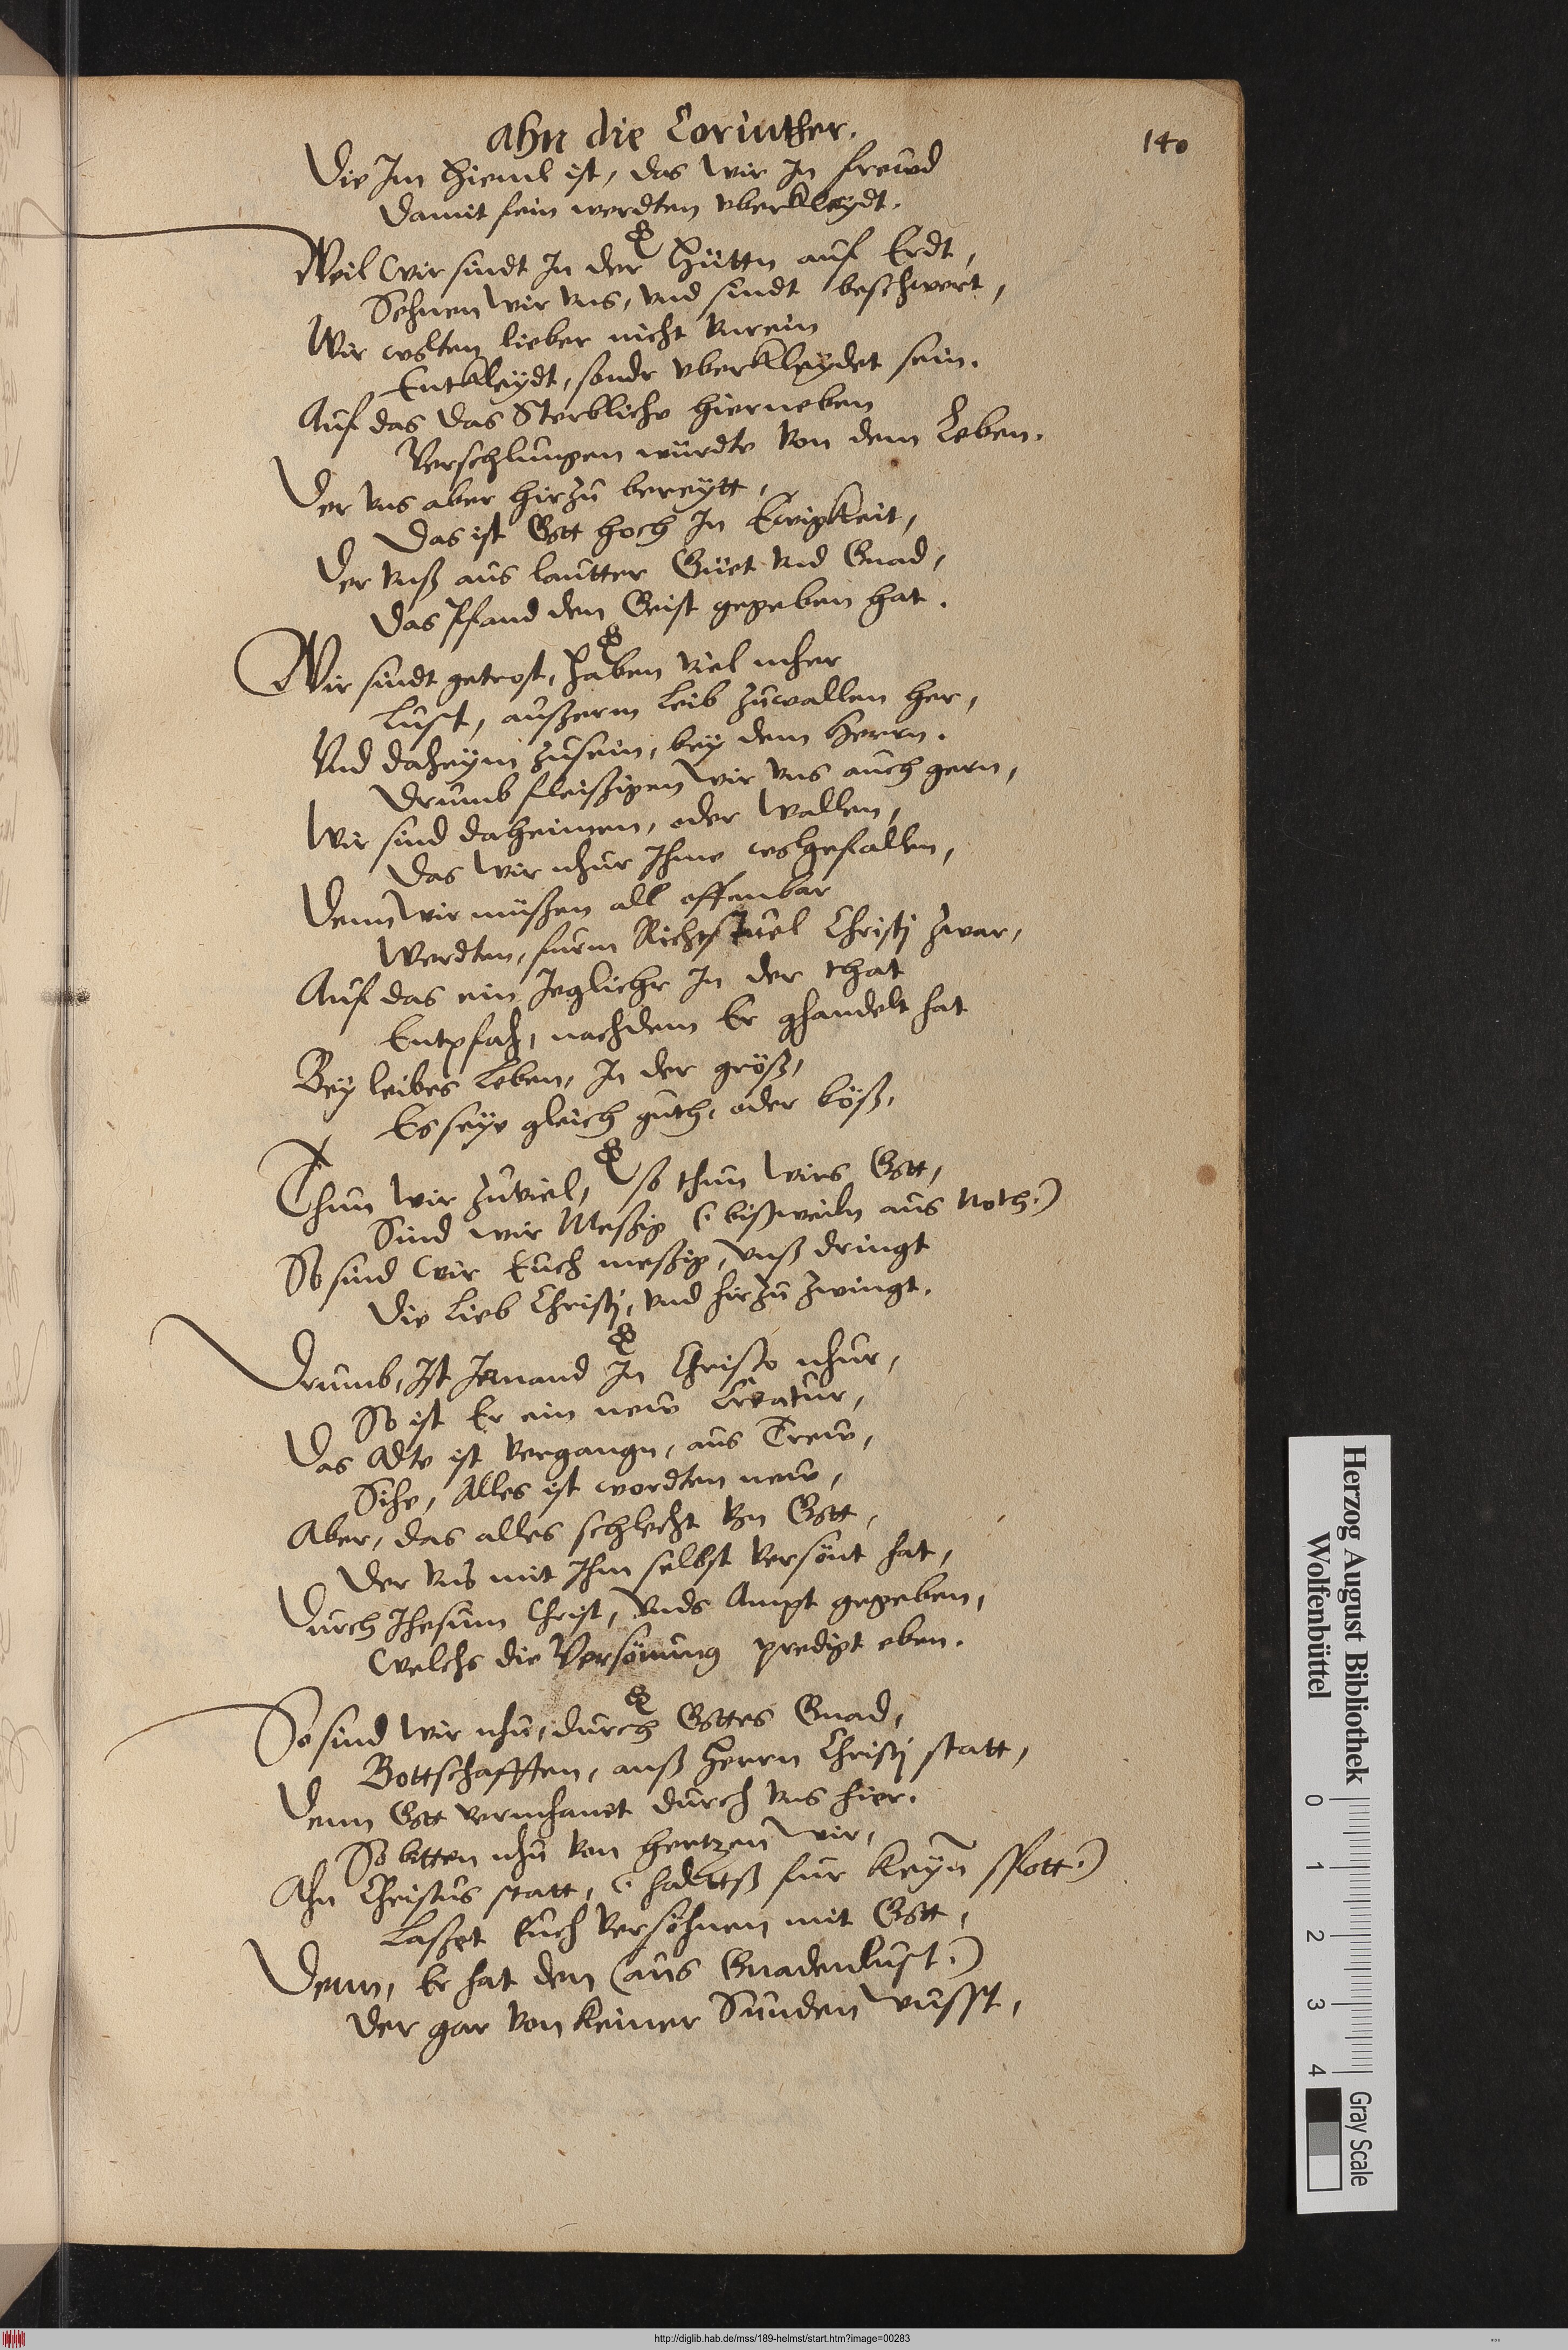 ahn die Corinther.
140
Die Im Hieml ist, das wir In freud
Damit fein werdten vberkleydt.
Weil wir sindt In der Hüttn auf Erdt,
Sehnen wir vns, vnd sindt beschwert,
Wir wolten lieber nicht vnrein
Entkleydt, sondr vberkleydet sein.
Auf das das Sterbliche hierneben
Verschlungen würdte von dem Leben.
Der vns aber hirzu bereytt,
Das ist Gott hoch In Ewigkeit,
Der vnß aus lautter Güet vnd Gnad,
Das Pfand den Geist gegeben hat.
Wir sindt getrost, haben viel mher
Lust, außerm leib zuwallen her,
Vnd daheym zusein, bey dem Herrn.
Drumb fleißigen wir vns auch gern,
Wir sind daheimen, oder wallen,
Das wir nhur Ihme wolgefallen,
Denn wir müßen all offenbar
Werdten, furm Richtstuel Christj zwar,
Auf das ein Jeglichr In der that
Entpfah, nachdem Er ghandelt hat
Bey leibes Leben, In der größ,
Es seye gleich guth, oder böß.
Thun wir zuviel, so thun wirs Gott,
Sind wir Meßig (bißweiln aus Noth.)
So sind wir Euch meßig, vnß dringt
Die Lieb Christj, vnd hirzu zwingt.
Drumb, Ist Jemand In Christo nhur,
So ist Er ein new Creatur,
Das Alte ist vergangn, aus Trew,
Sihe, Alles ist wordten new,
Aber, das alles schlecht vn Gott,
Der vns mit Ihm selbst versönt hat,
Durch Jhesum Christ, vnds Ampt gegeben,
Welchs die Versönung predigt eben.
So sind wir nhu, durch Gottes Gnad,
Bottschafften, anß Herrn Christj statt,
Denn Gott vermhanet durch vns hier.
So bitten nhu von hertzen wir,
Ahn Christus statt, (haltts fur keyn spott.)
Laßet Euch versöhnen mit Gott,
Denn, Er hat den (aus Gnadenlust.)
Der gar von keiner Sunden wusst,
Herzog August Bibliothek
Wolfenbüttel
0 1 2 3 4
Gray Scale
http://diglib.hab.de/mss/189-helmst/start.htm?image=00283